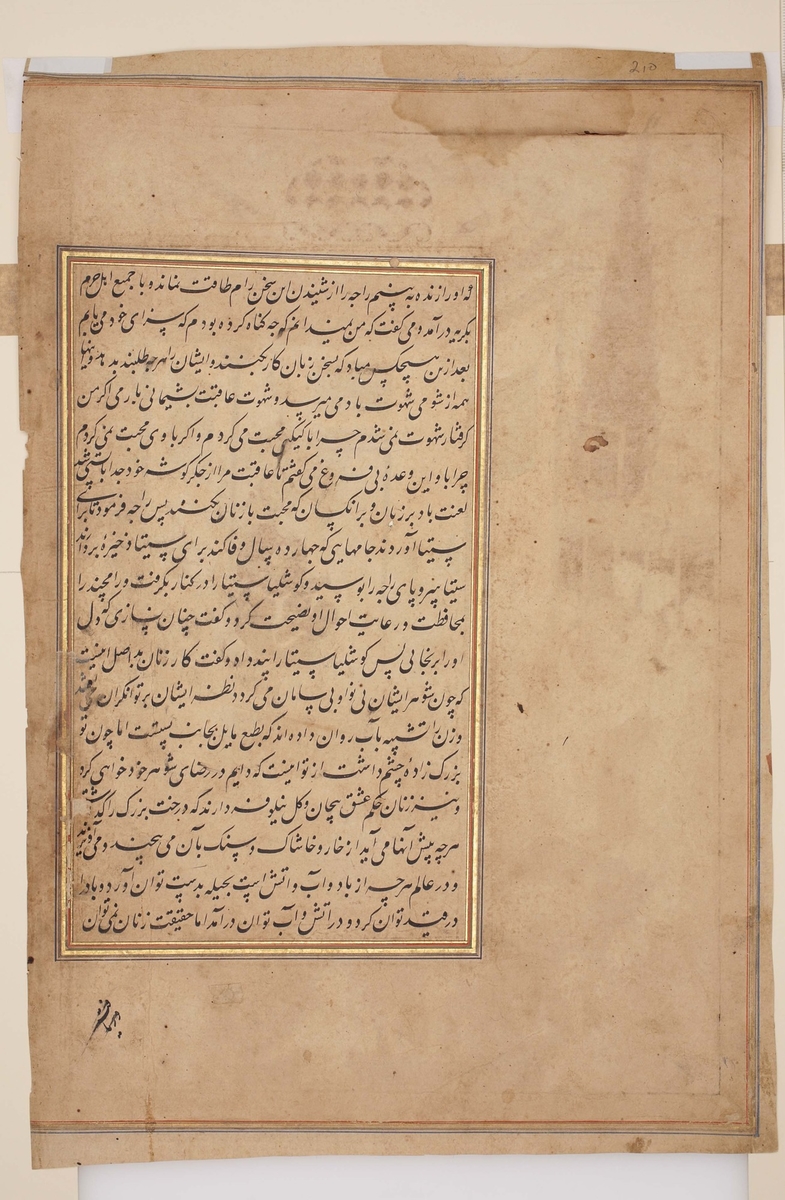 210
که او را زنده به بینم راجه را از شنیدن این سخن رام طاقت نماند و با جمیع اهل حرم
بگریه درآمد و می گفت که من نمیدانم که چه گناه کرده بودم که سزای خود می یابم
بعد ازین هیچکس مباد که بسخن زنان کار بکنند و ایشان را هرچه طلبند بدهد
همه از شومی شهوت بادمی میرسد و شهوت عاقبت پشیمانی بار می اگر من
گرفتار شهوت نمی شدم چرا با کیکیی محبت می کردم و اگر با وی محبت نمی کردم
چرا با و این وعدهٔ بی فروغ می گفتم تا عاقبت مرا از جگر گوشه خود جدا
لعنت باد بر زنان و بر انکسان که محبت با زنان بکنند پس راجه فرمود تا برای
سیتا آوردند جامهایی که چهارده سال وفا کند برای سیتا ذخیره بردارند
سیتا سر و پای راجه را بوسید و کوشلیا سیتا را در کنار بگرفت و رامچند را
بمحافظت و رعایت احوال او نصیحت کرد و گفت چنان نسازی که دل
او را برنجانی پس کوشلیا سیتا را پند داد و گفت کار زنان بد اصل اینست
که چون شوهر ایشان بی نوا و بی سامان می گردد نظر ایشان بر توانگران
و زن را تشبیه بآب روان داده اند که بطبع مایل بجانب پستست اما چون تو
بزرگ زادهٔ چشم داشت از تو اینست که دایم در رضای شوهر خود خواهی کرد
و نیز زنان حکم عشق پیچان و گل نیلوفر دارند که درخت بزرگ را گذاشته
هرچه پیش آنها می آید از خار و خاشاک و سنگ بآن می پیچند و می آویزند
و در عالم هرچه از باد و آب و آتش است بحیله بدست توان آورد و باد را
در قید توان کرد و در آتش و آب توان درآمد اما حقیقت زنان نمی توان